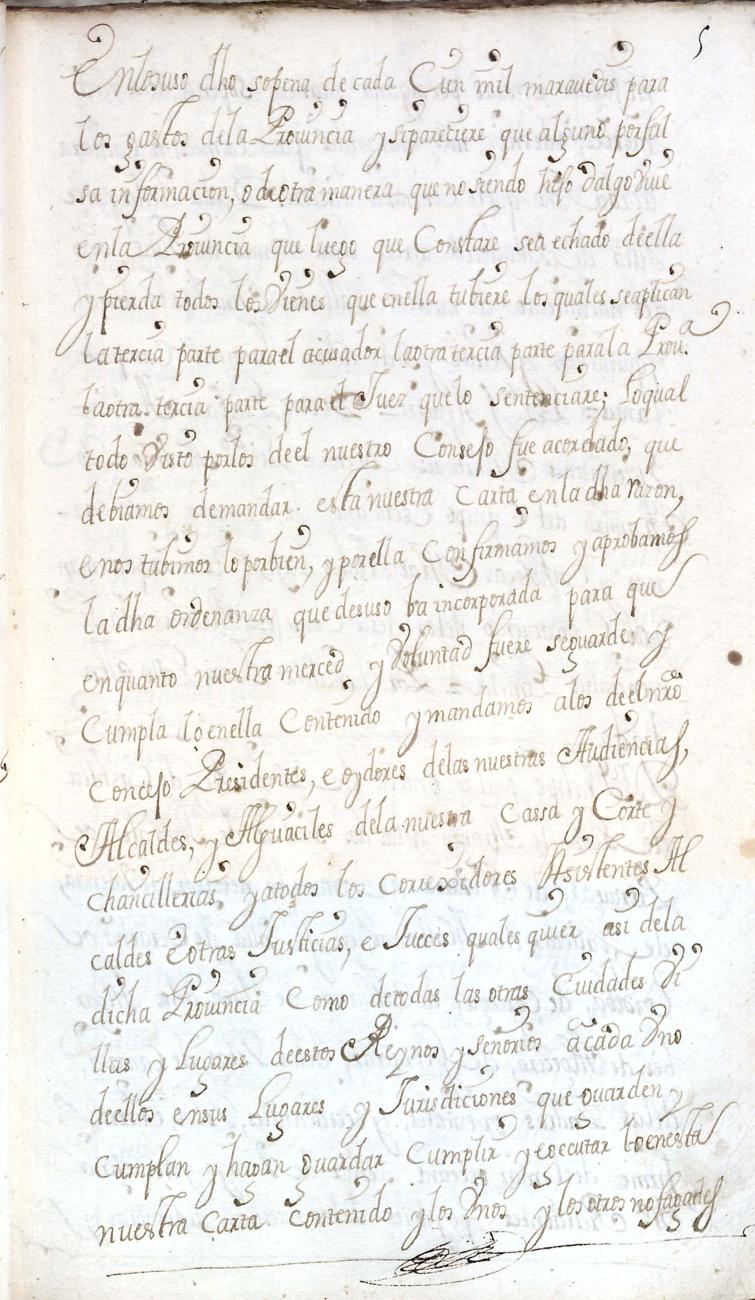 5
Enlosuso dho sopena de cada Cien mil maravedis para
los gastos dela Prouincia y sipareciere que alguno por fal
sa informacion, o deotra manera que no siendo hijo dalgo viue
enla Prouincia que luego que Constare sea echado deella
y pierda todos los vienes que enella tubiere los quales seaplican
la tercia parte parael acusador laotra tercia parte parala Prou.ª
laotra tercia parte para el Juez quelo sentenciare; Loqual
todo visto porlos deel nuestro Consejo fue acordado, que
debiamos demandar esta nuestra Carta enla dha razon,
e nos tubimos lo porbien, y porella Confirmamos y aprobamos
la dha ordenanza que desuso ba incorporada para que
enquanto nuestra merced y voluntad fuere seguarde, y
Cumpla lo enella Contenido y mandamos alos deelnro
Concejo Presidentes, e oydores delas nuestras Audiencias,
Alcaldes, y Alguaciles dela nuestra Cassa y Corte y
Chancillerias y atodos los Correxidores Asistentes Al
caldes e otras Justicias, e Jueces quales quier asi dela
dicha Prouincia Como detodas las otras Ciudades Vi
llas y Lugares deestos Reynos y señorios a cada Vno
deellos ensus Lugares y Jurisdiciones que guarden y
Cumplan y hagan guardar Cumplir y executar loenesta
nuestra Carta Contenido y los Vnos y los otros no fagades